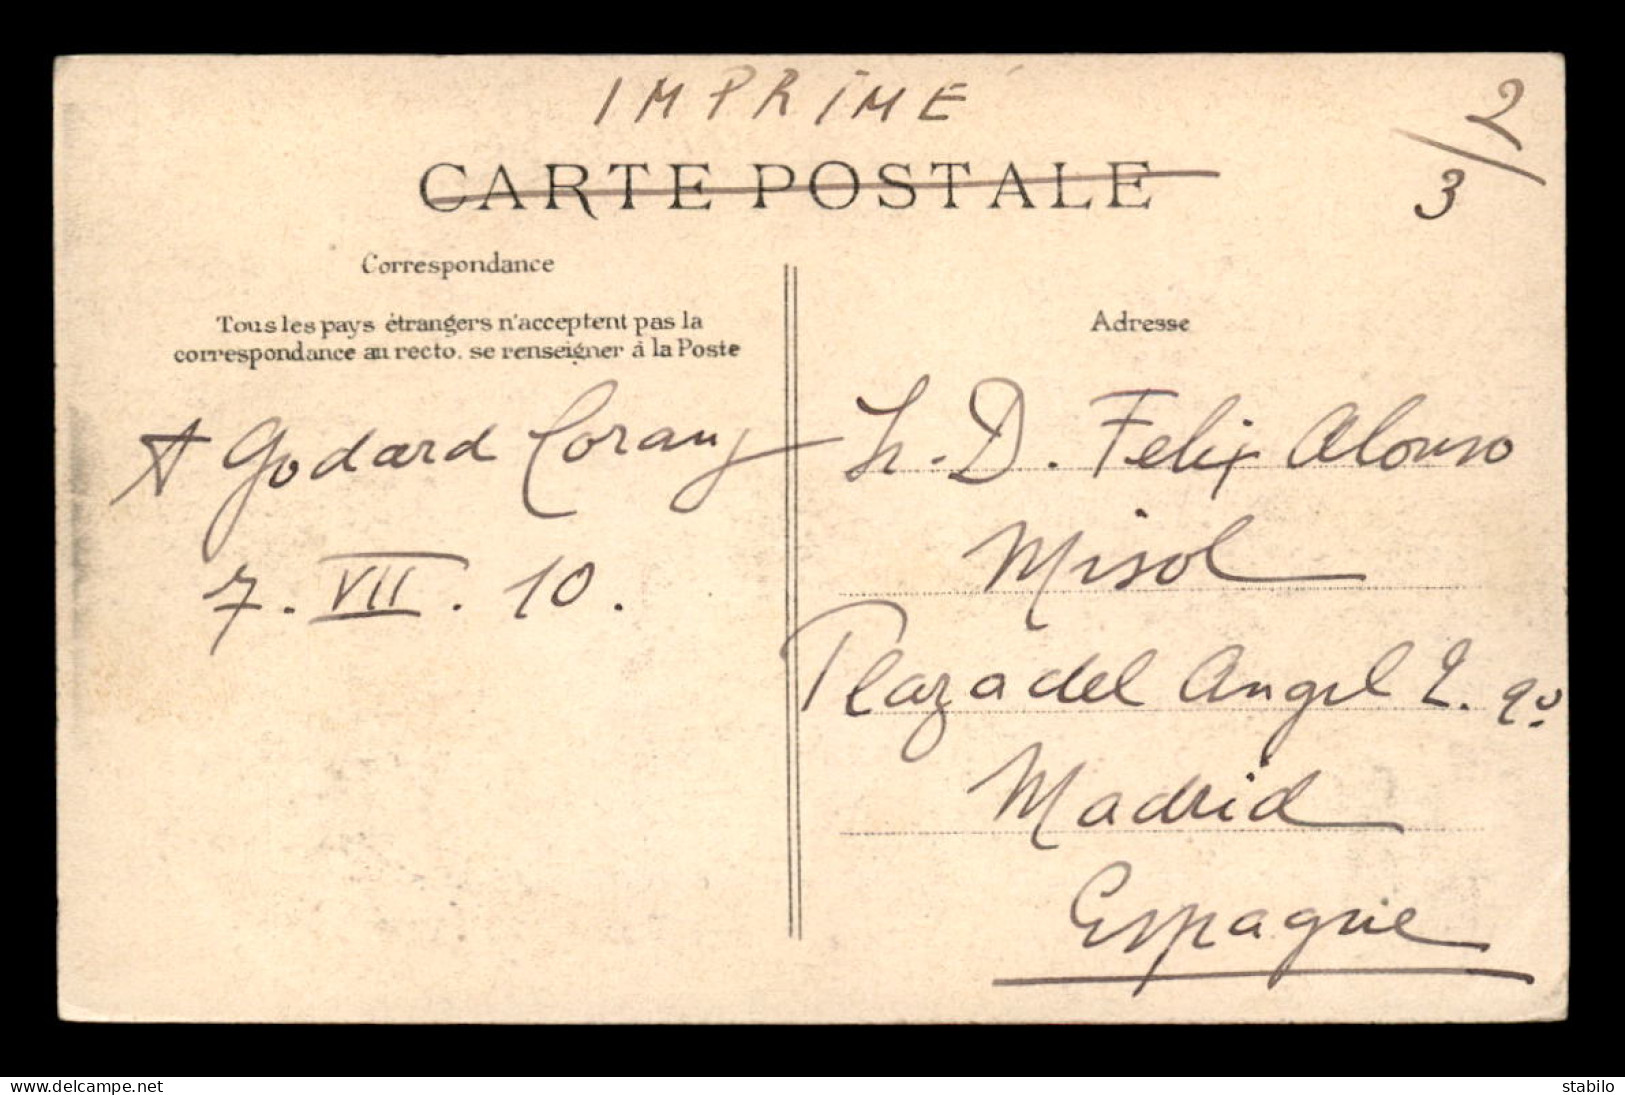 IMPRIMÉ
2/3
CARTE POSTALE
Correspondance
Tous les pays étrangers n'acceptent pas la
correspondance au recto. se renseigner à la Poste
A Godard
7. VII. 10.
Adresse
Sr. D. Felix Alonso
Misol
Plaza del Angel 2. 2º
Madrid
Espagne
www.delcampe.net
stabilo